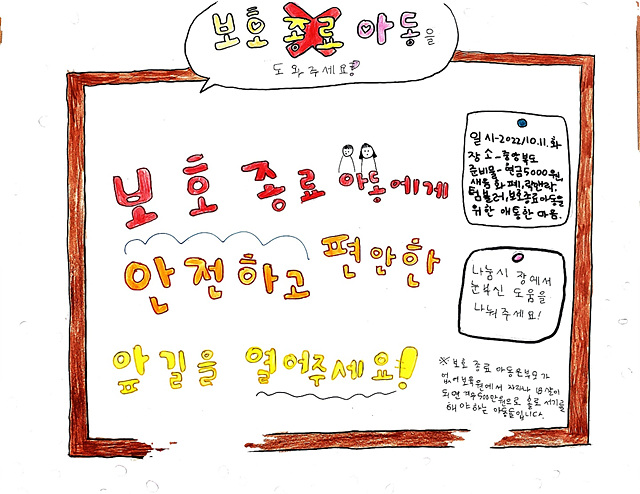 보호 종료 아동을
도와주세요!
보호 종료 아동에게
안전하고 편안한
앞길을 열어주세요!
일시-2022/10.11.화
장소-중앙복도
준비물-현금5000원,
생동화폐,락앤락,
텀블러,보호종료아동을
위한 애통한 마음.
나눔시 장에서
눈부신 도움을
나눠주세요!
※보호 종료 아동은부모가
없어보육원에서 자라나 18살이
되면 겨우500만원으로 홀로 서기를
해야하는 아동들입니다.